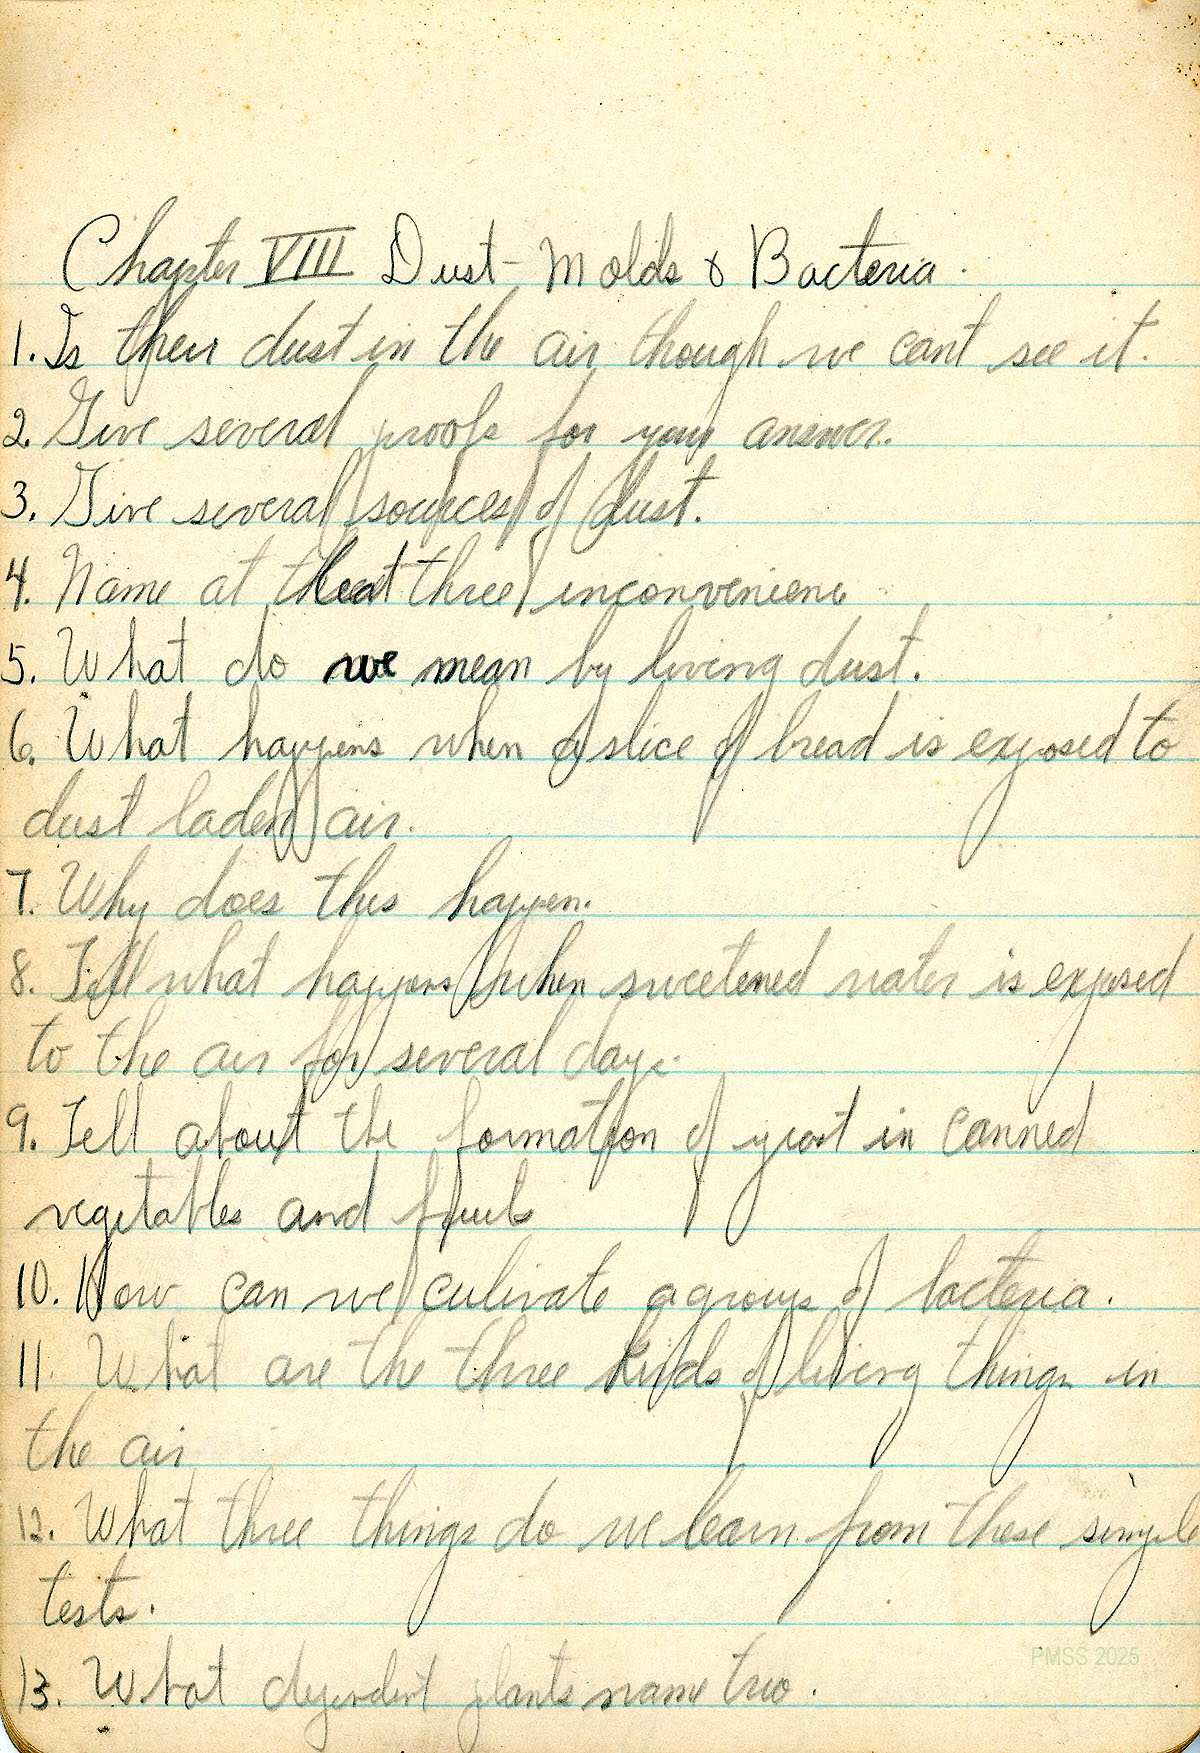 Chapter VIII Dust - Molds & Bacteria.
1. Is their dust in the air though we cant see it.
2. Give several proofs for your answer.
3. Give several sources of dust.
4. Name at least three inconvenienc
5. What do we mean by living dust.
6. What happens when a slice of bread is exposed to
dust laden air.
7. Why does this happen.
8. Tell what happens when sweetened water is exposed
to the air for several days.
9. Tell about the formation of yeast in canned
vegetables and fruits
10. How can we cultivate a group of bacteria.
11. What are the three kinds of living things in
the air
12. What three things do we learn from these simple
tests.
PMSS 2025
13. What dependent plants name two.